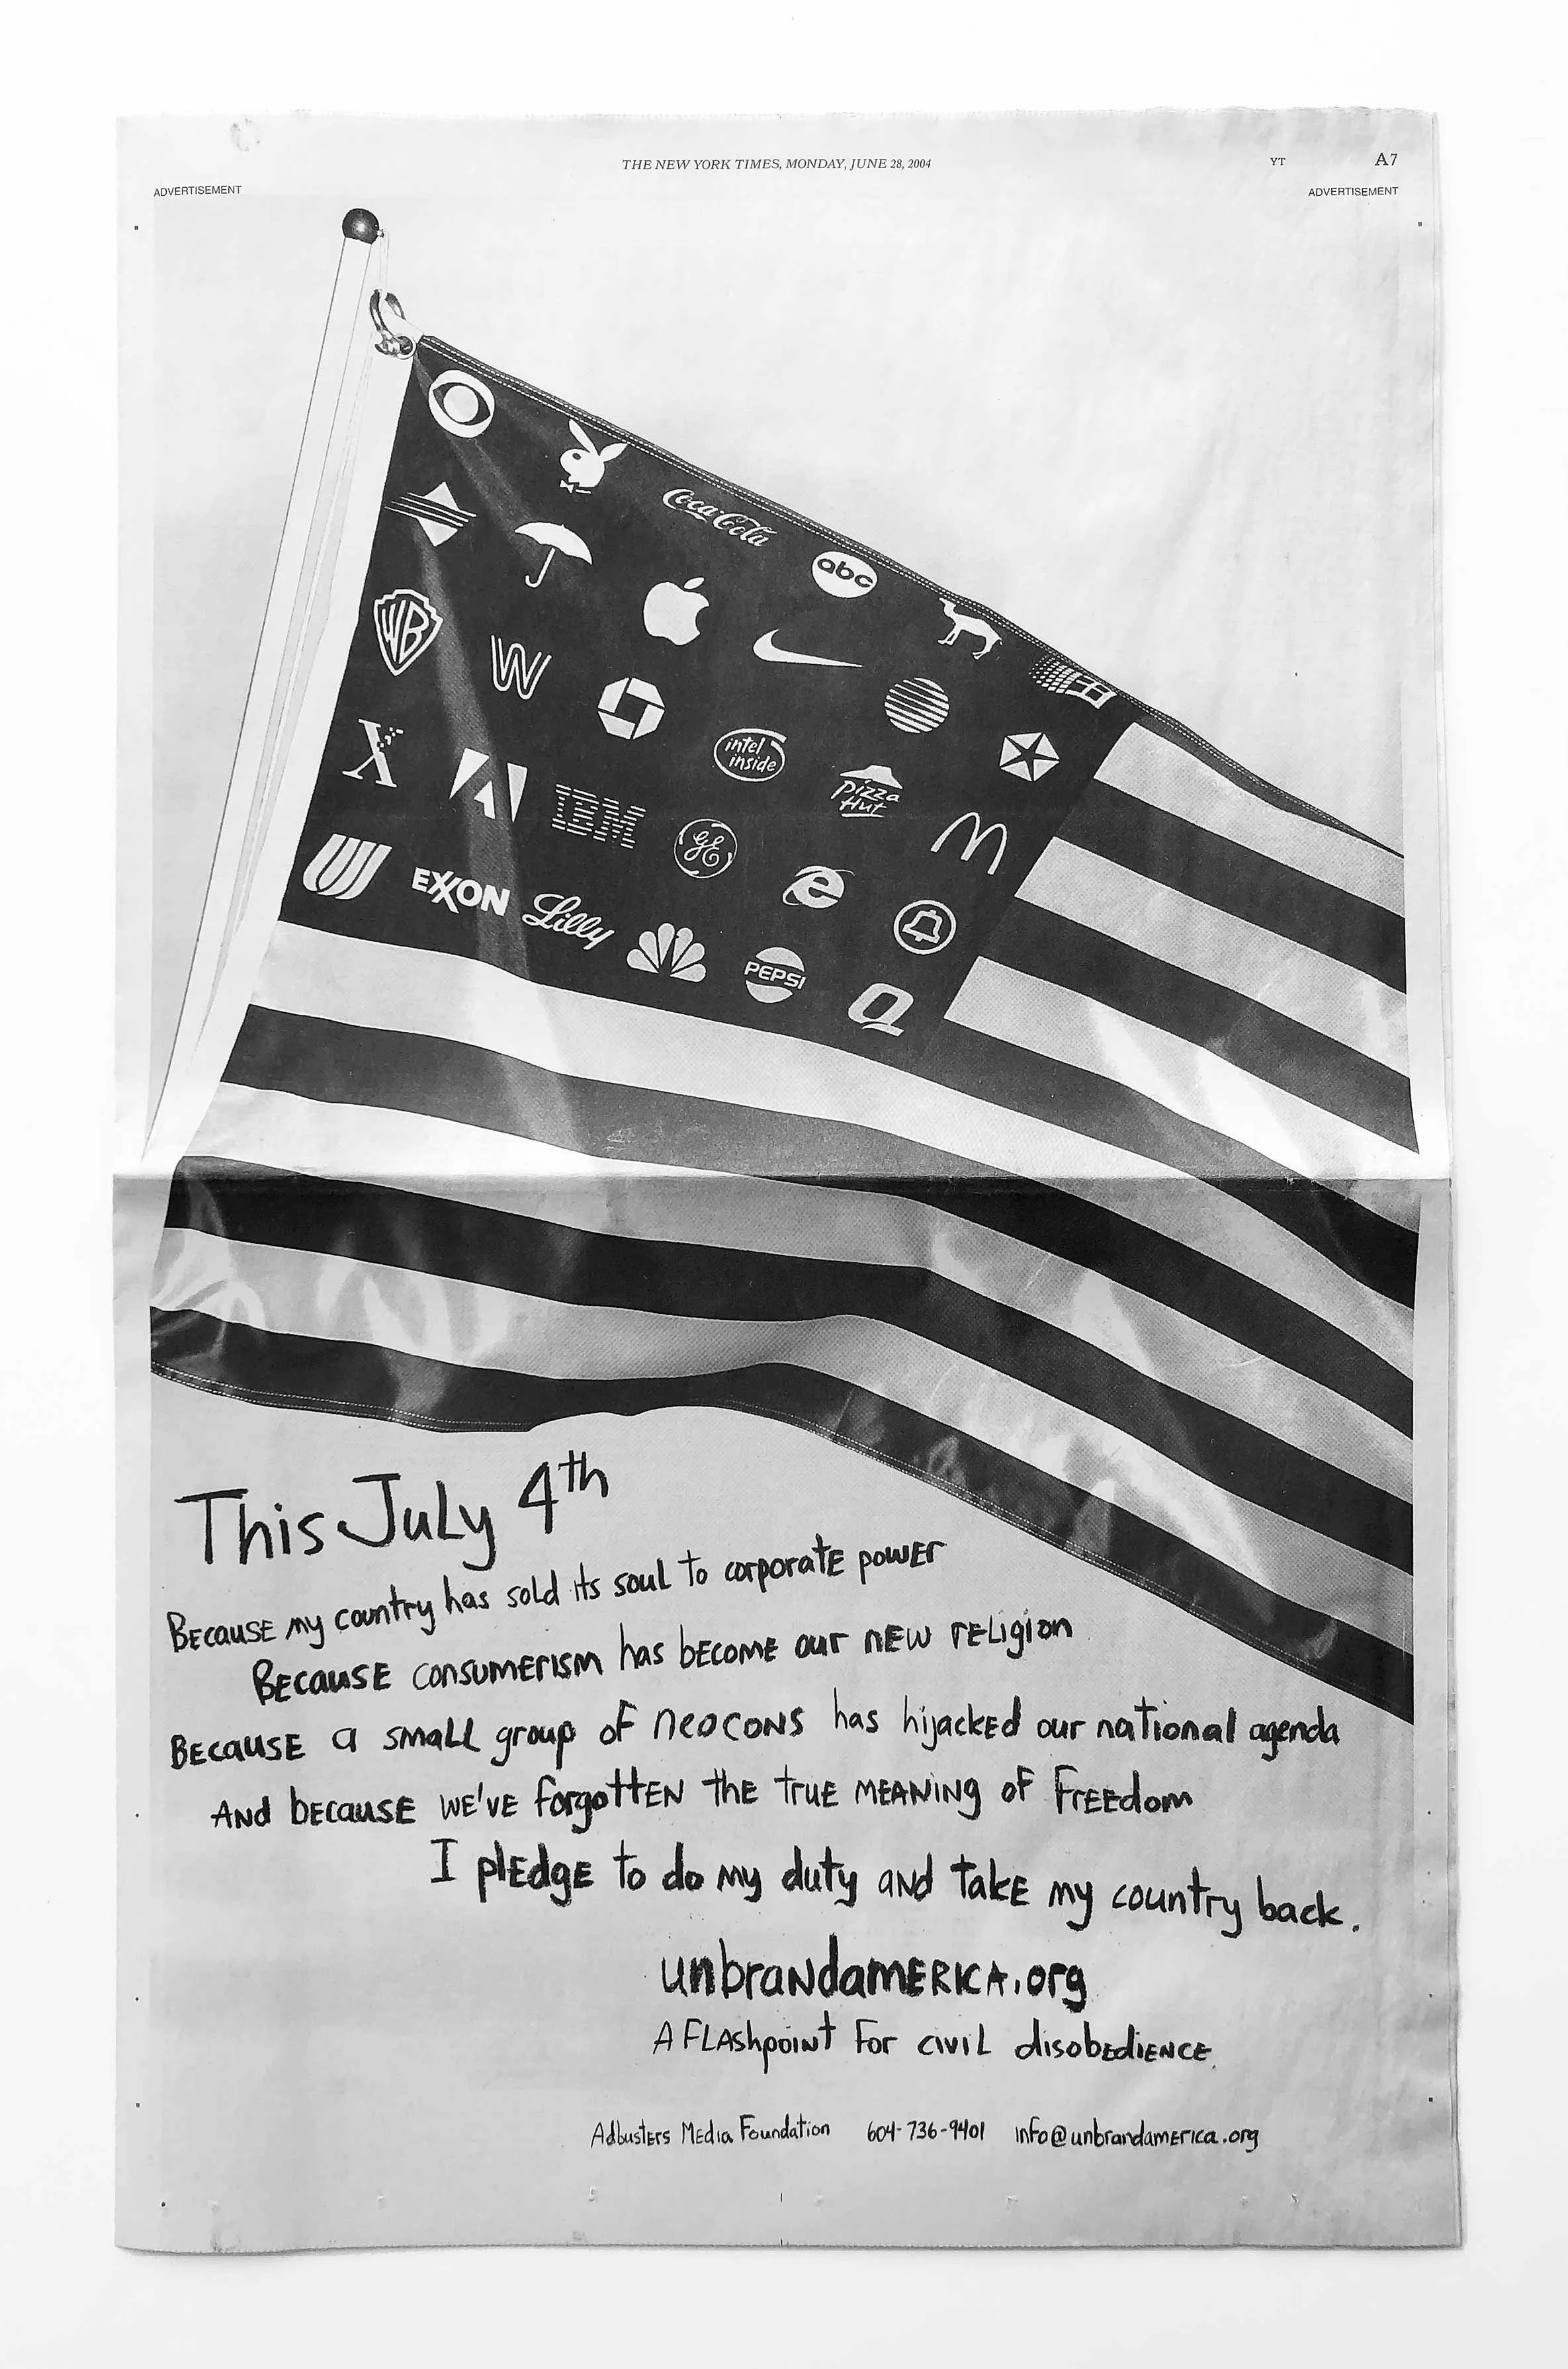 THE NEW YORK TIMES, MONDAY, JUNE 28, 2004
YT
A7
ADVERTISEMENT
ADVERTISEMENT
Coca-Cola
abc
WB
W
intel inside
Pizza Hut
X
IBM
GE
M
e
EXXON
Lilly
PEPSI
Q
This July 4th
Because my country has sold its soul to corporate power
Because consumerism has become our new religion
Because a small group of neocons has hijacked our national agenda
And because we've forgotten the true meaning of freedom
I pledge to do my duty and take my country back.
unbrandamerica.org
A flashpoint for civil disobedience.
Adbusters Media Foundation 604-736-9401 info@unbrandamerica.org